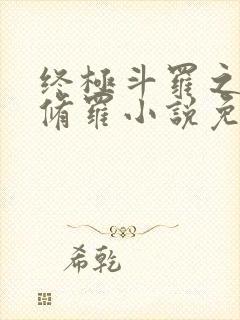 终极斗罗之
脩罗小說免
希乾